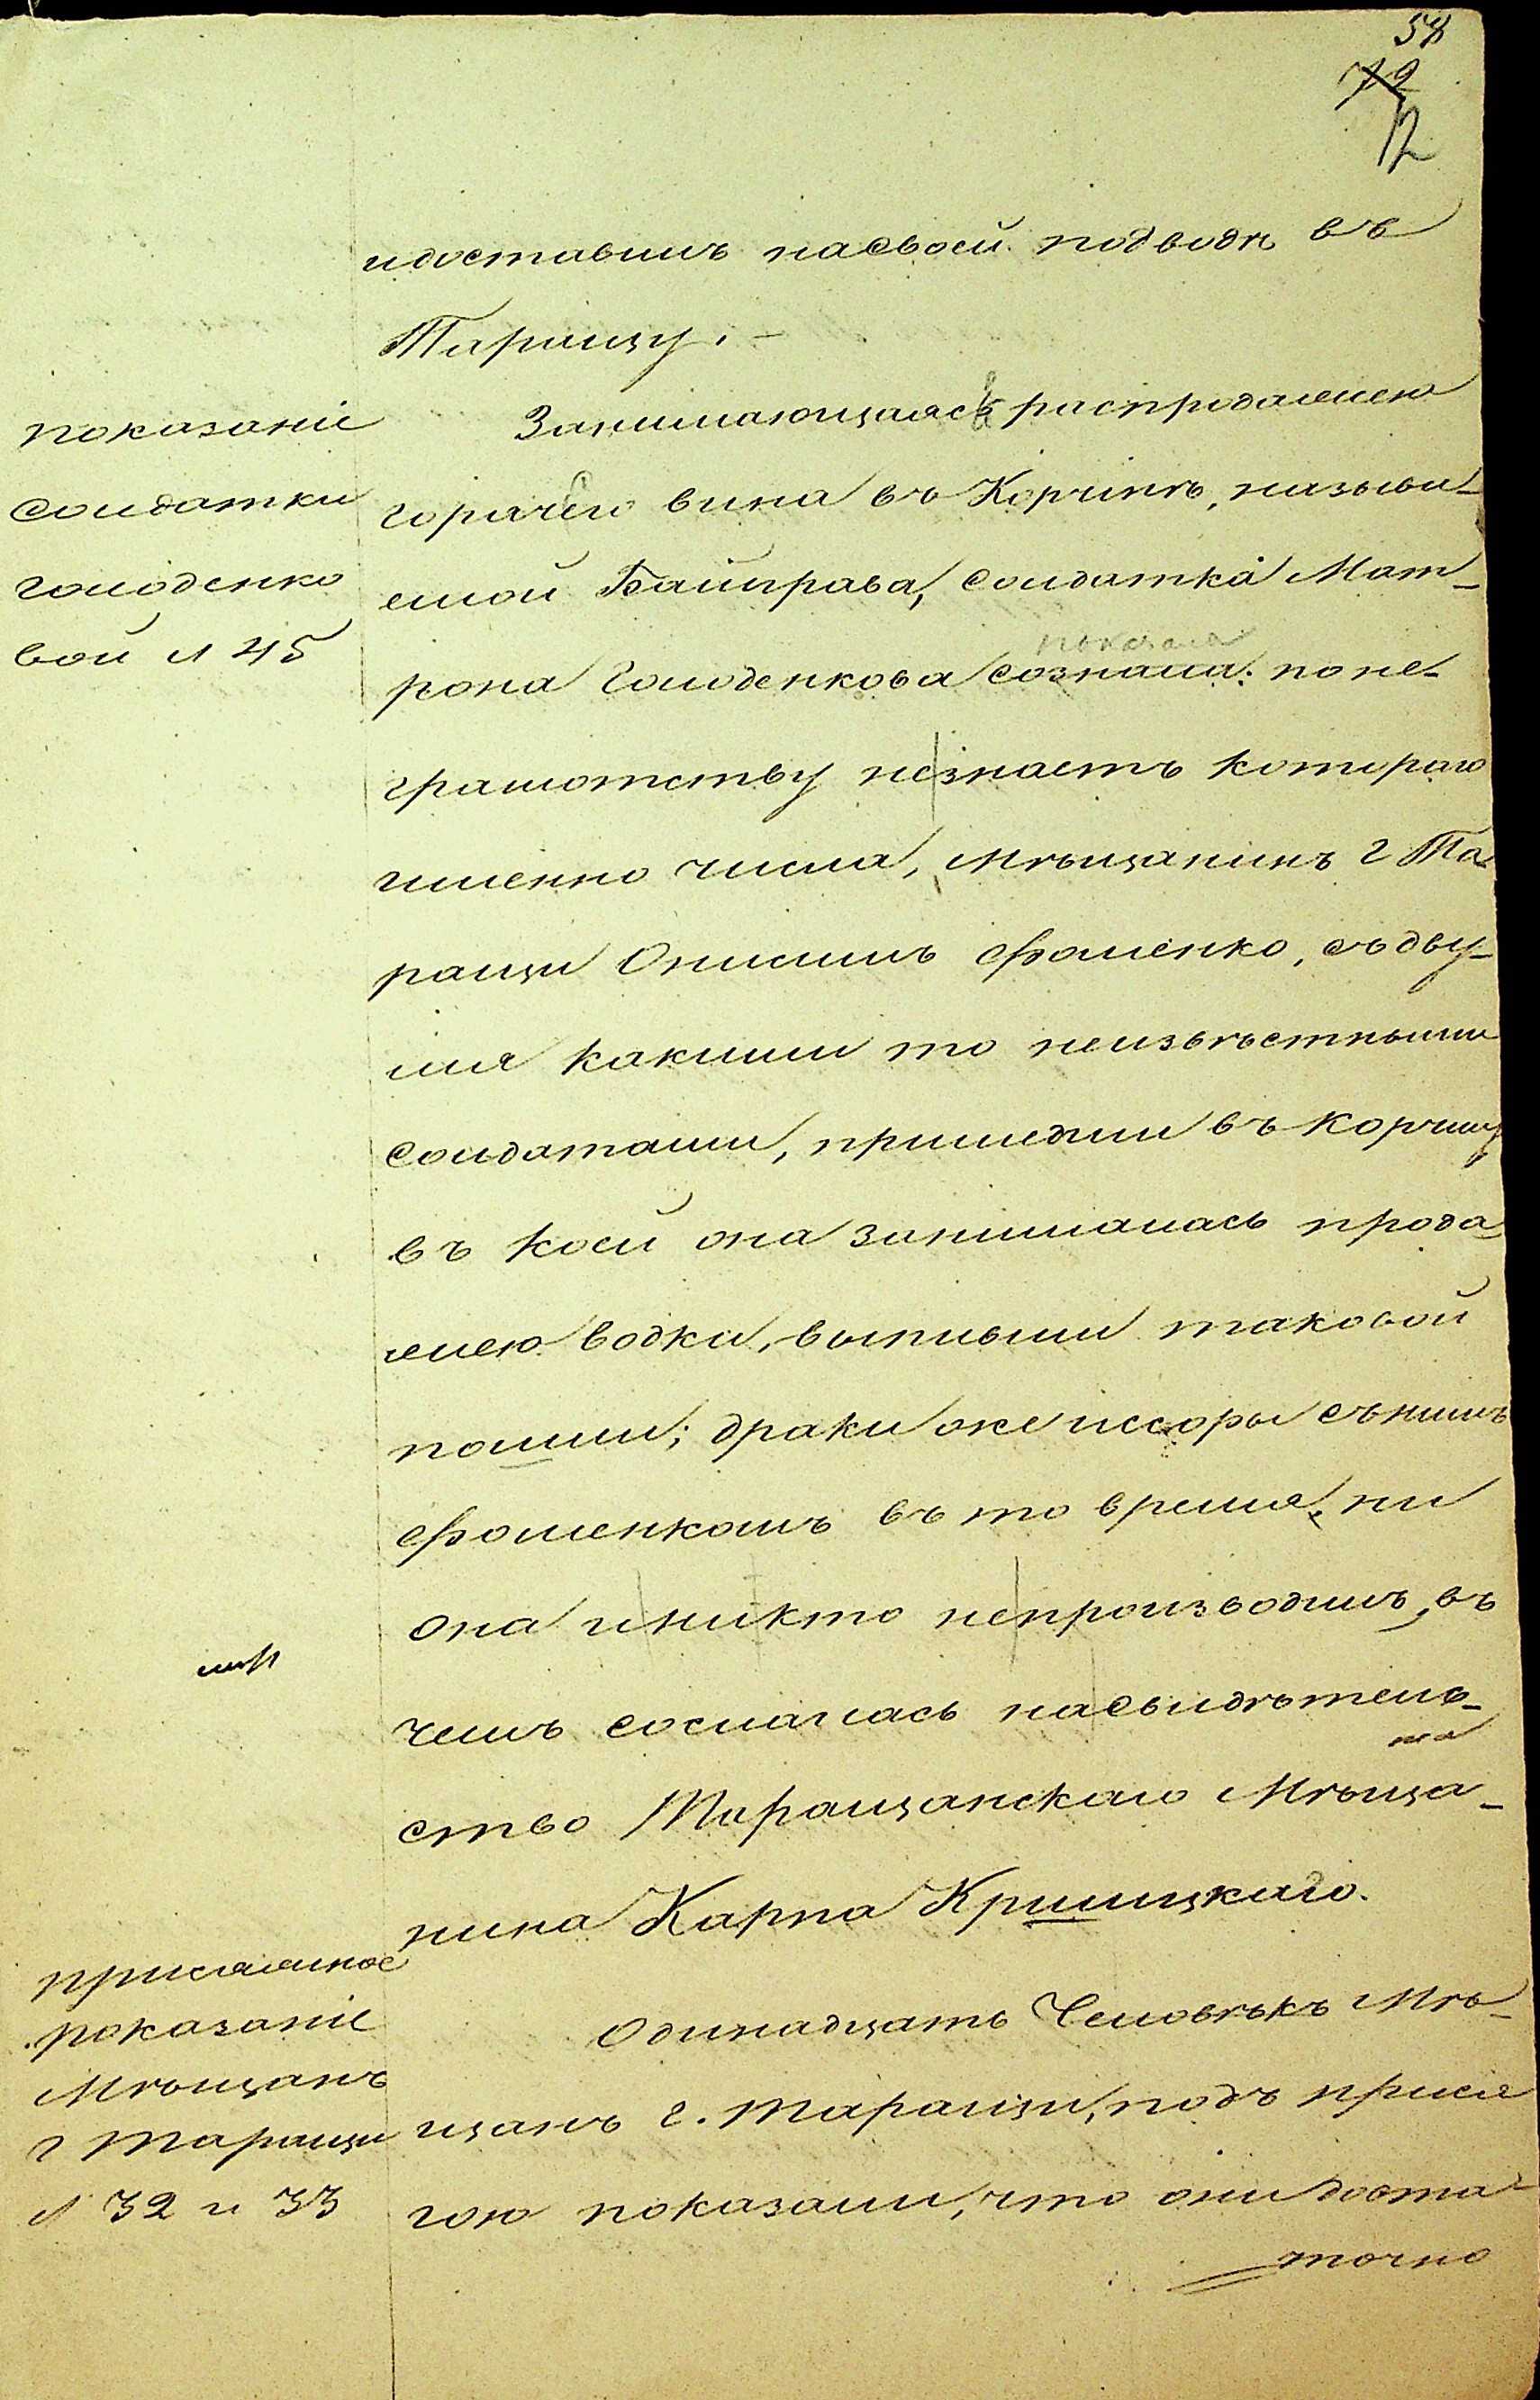 58
72
12
идоставилъ насвоей подводѣ въ
Таращу. –
показаніе
солдатки
голоденко
вой л 45
Занимающаяся распродажею
горячего вина въ Корчмѣ, называ-
емой Байправа, солдатка Мат-
показала
рона Голоденкова сознала: поне-
грамотству незнаетъ котораго
именно числа, Мѣщанинъ г Та-
ращи Онисимъ Фоменко, съ дву-
мя какими то неизвѣстными
солдатами, пришедши въ Корчму
въ коей она занималась прода-
жею водки, выпивши таковой
пошли; драки же иссоры съ нимъ
Фоменкомъ въ то время, ни
она иникто непроизводилъ, въ
чемъ сослалась насвидѣтель-
ство Таращанскаго Мѣща-
нина Карпа Кришицкаго.
присяжное
показаніе
Мѣщанъ
г Таращи
л 32 и 33
Одинадцать Человѣкъ Мѣ-
щанъ г. Таращи, подъ прися
гою показали, что они доста-
точно